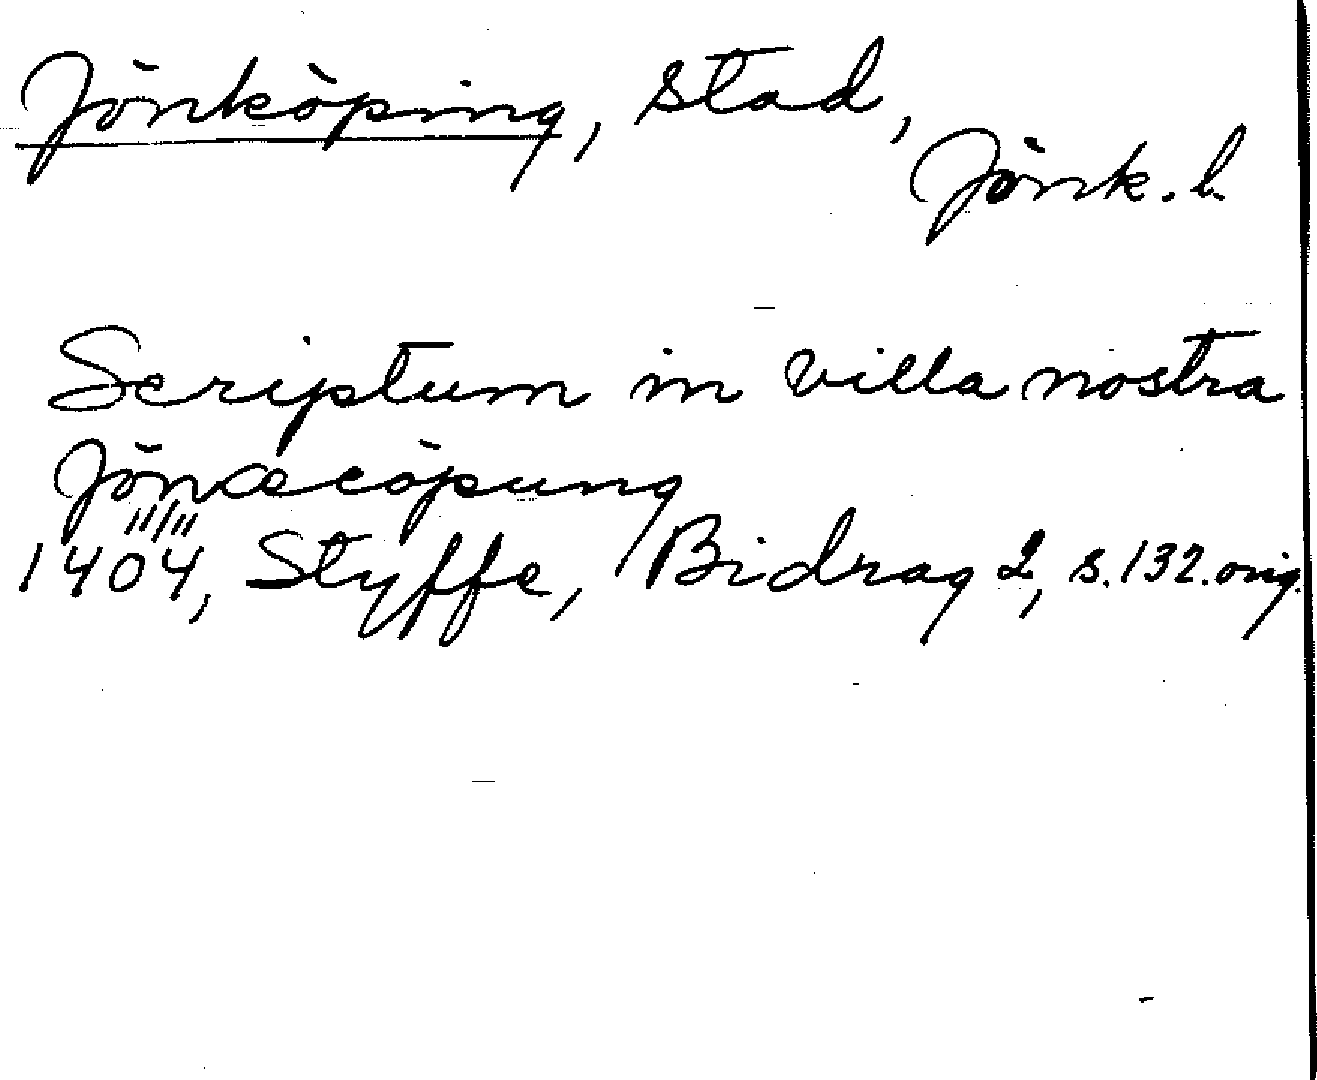 Jönköping, stad,
Jönk. l.
Scriptum in villa nostra
Jönæcöpung
11/11
1404, Styffe, Bidrag 2, s. 132. orig.